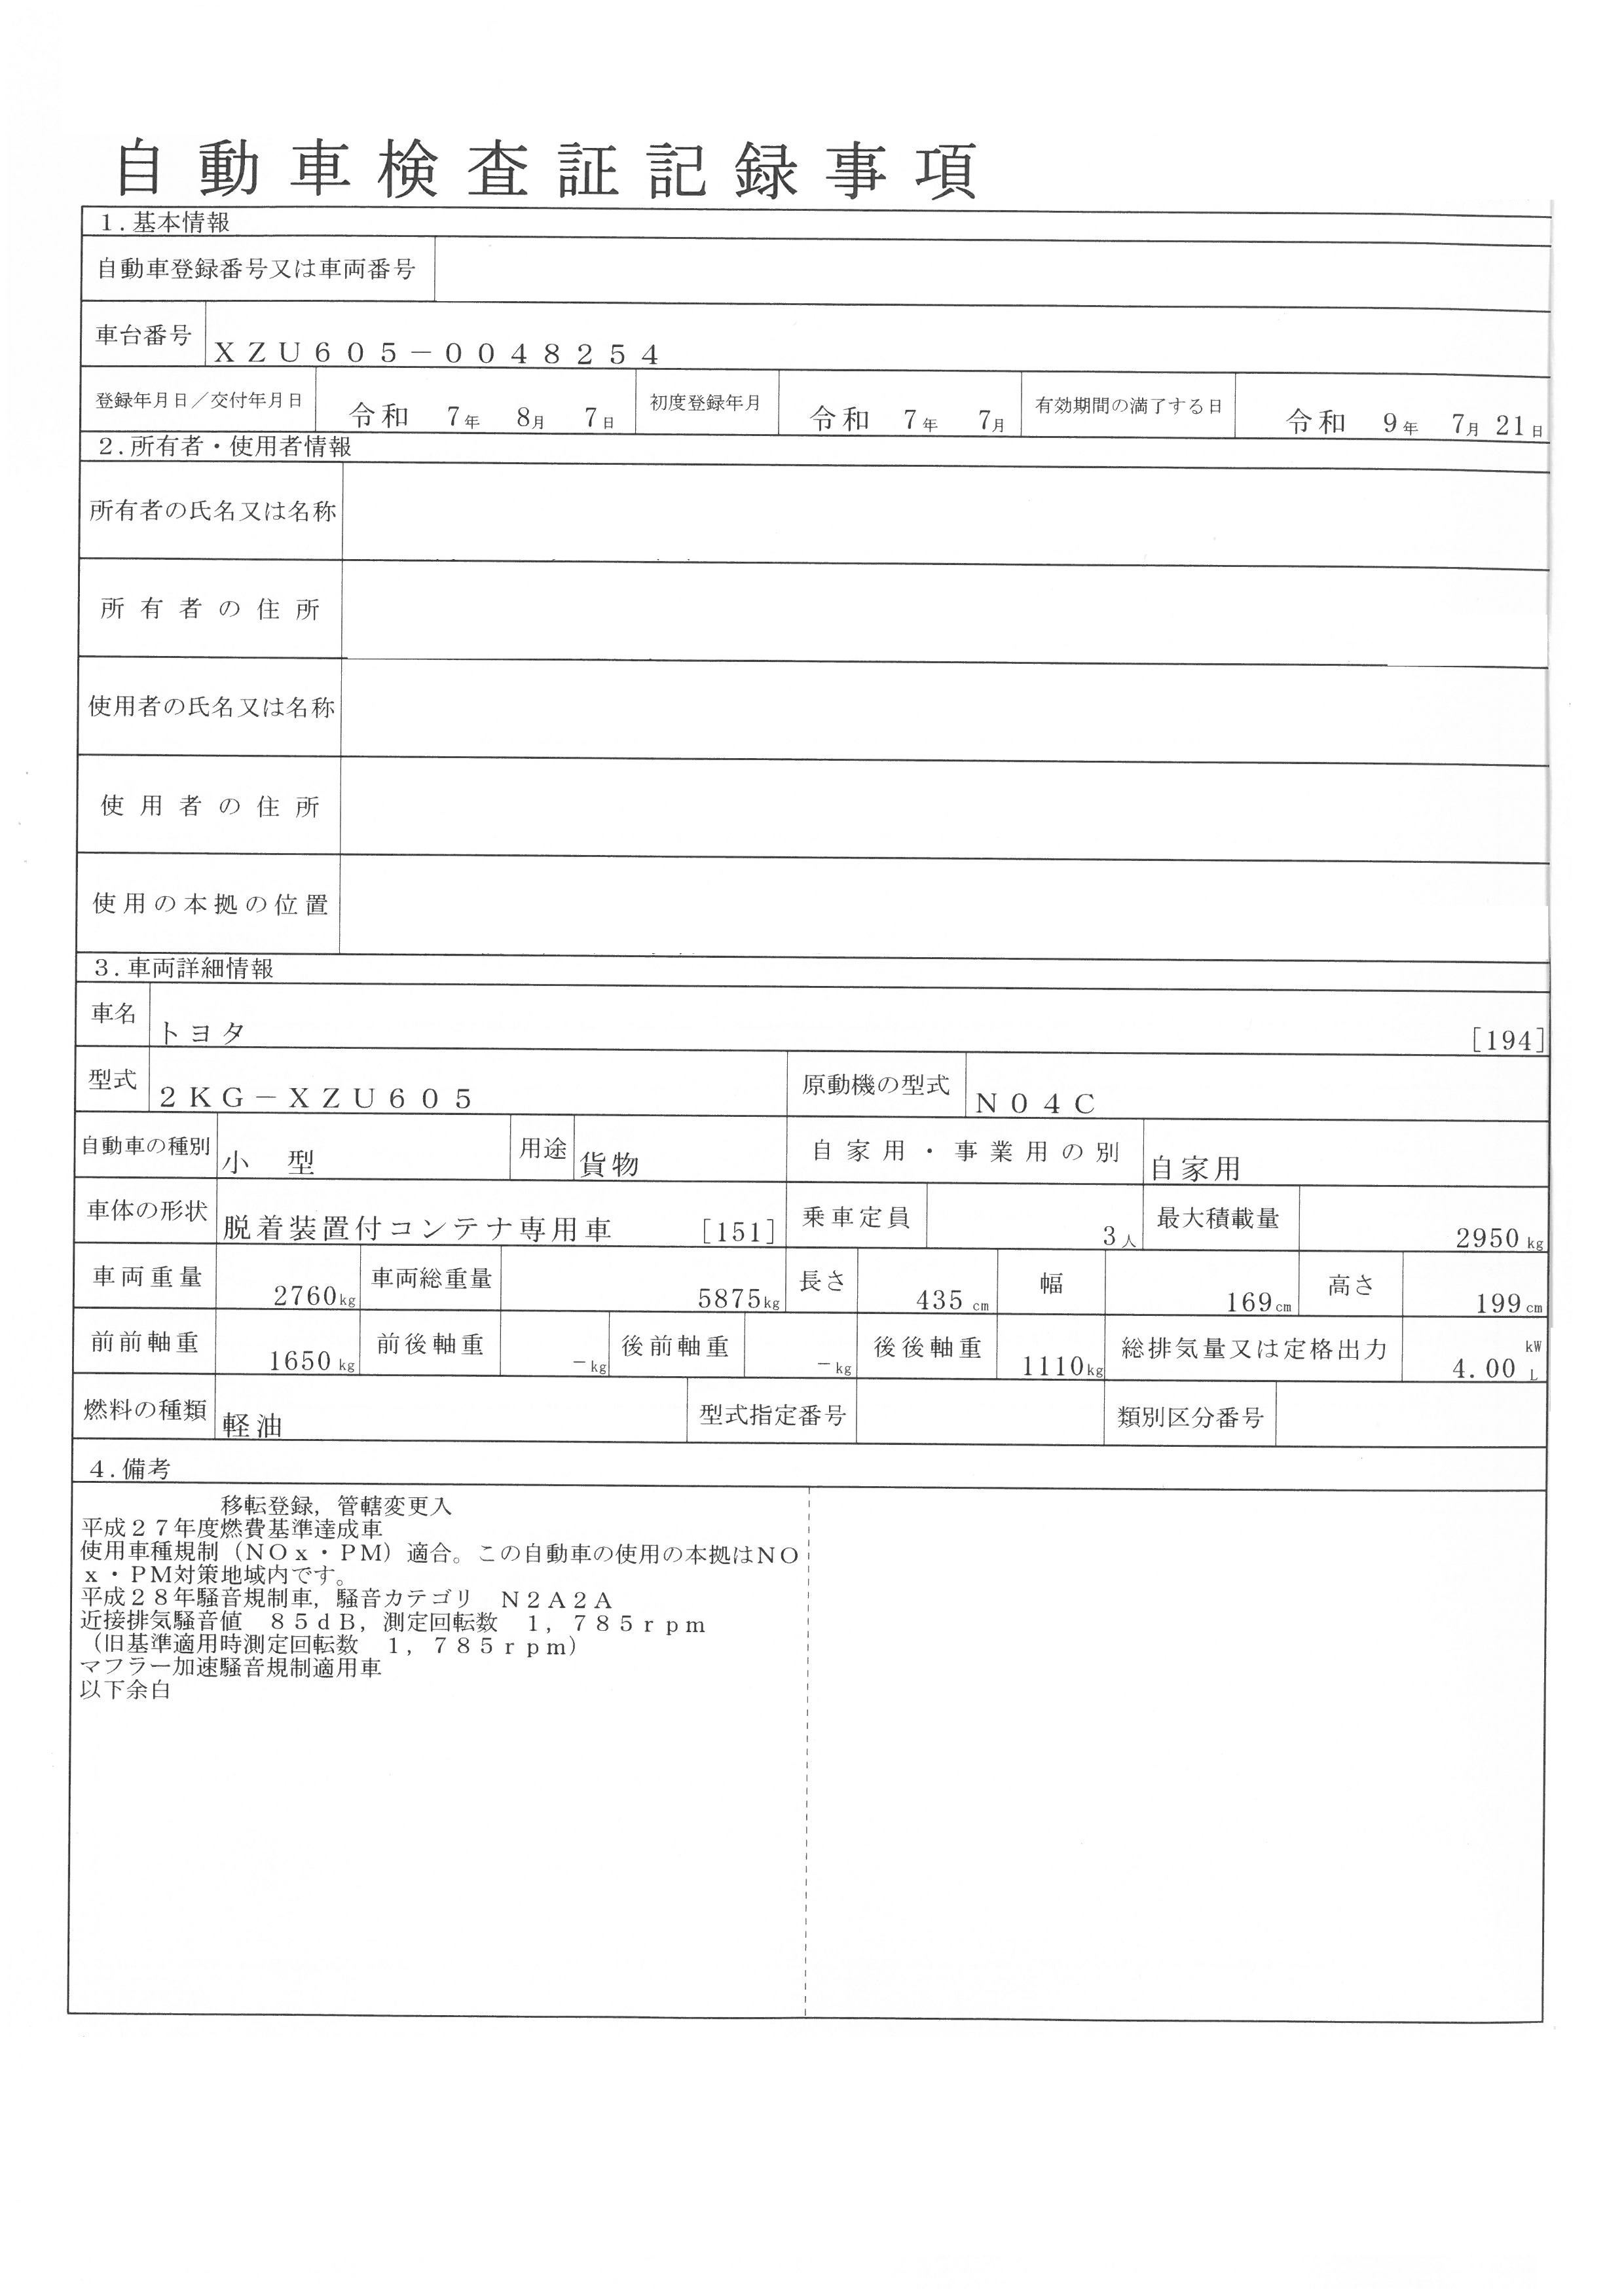 自動車検査証記録事項
1.基本情報
自動車登録番号又は車両番号
車台番号 XZU605-0048254
登録年月日/交付年月日 令和 7年 8月 7日 初度登録年月 令和 7年 7月 有効期間の満了する日 令和 9年 7月 21日
2.所有者・使用者情報
所有者の氏名又は名称
所有者の住所
使用者の氏名又は名称
使用者の住所
使用の本拠の位置
3.車両詳細情報
車名 トヨタ [194]
型式 2KG-XZU605 原動機の型式 N04C
自動車の種別 小型 用途 貨物 自家用・事業用の別 自家用
車体の形状 脱着装置付コンテナ専用車 [151] 乗車定員 3人 最大積載量 2950kg
車両重量 2760kg 車両総重量 5875kg 長さ 435cm 幅 169cm 高さ 199cm
前前軸重 1650kg 前後軸重 -kg 後前軸重 -kg 後後軸重 1110kg 総排気量又は定格出力 4.00 kW L
燃料の種類 軽油 型式指定番号 類別区分番号
4.備考
移転登録,管轄変更入
平成27年度燃費基準達成車
使用車種規制(NOx・PM)適合。この自動車の使用の本拠はNO
x・PM対策地域内です。
平成28年騒音規制車,騒音カテゴリ N2A2A
近接排気騒音値 85dB,測定回転数 1,785rpm
(旧基準適用時測定回転数 1,785rpm)
マフラー加速騒音規制適用車
以下余白